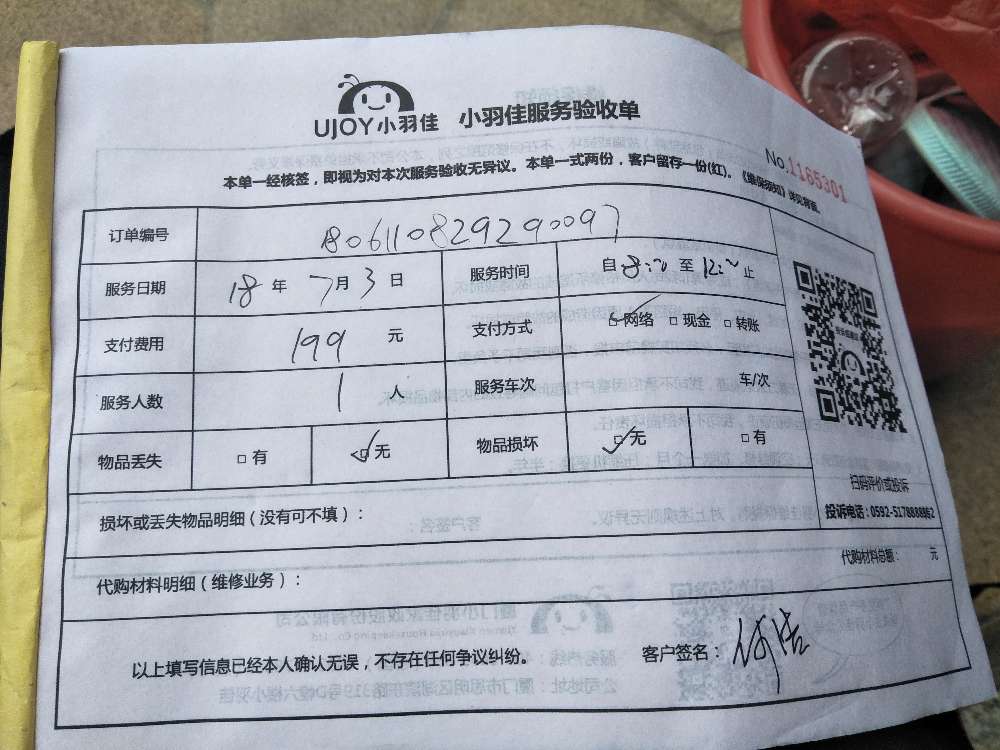 UJOY小羽佳 小羽佳服务验收单
No.1165301
本单一经核签，即视为对本次服务验收无异议。本单一式两份，客户留存一份(红)。《维保须知》详见背面。
订单编号 180611082929009​7
服务日期 18 年 7 月 3 日 服务时间 自 8:00 至 12:00 止
支付费用 199 元 支付方式 ☑网络 □现金 □转账
服务人数 1 人 服务车次 车/次
物品丢失 □有 ☑无 物品损坏 ☑无 □有
扫码评价或投诉
损坏或丢失物品明细（没有可不填）：
投诉电话：0592-517888862
代购材料明细（维修业务）： 代购材料总额： 元
以上填写信息已经本人确认无误，不存在任何争议纠纷。 客户签名：